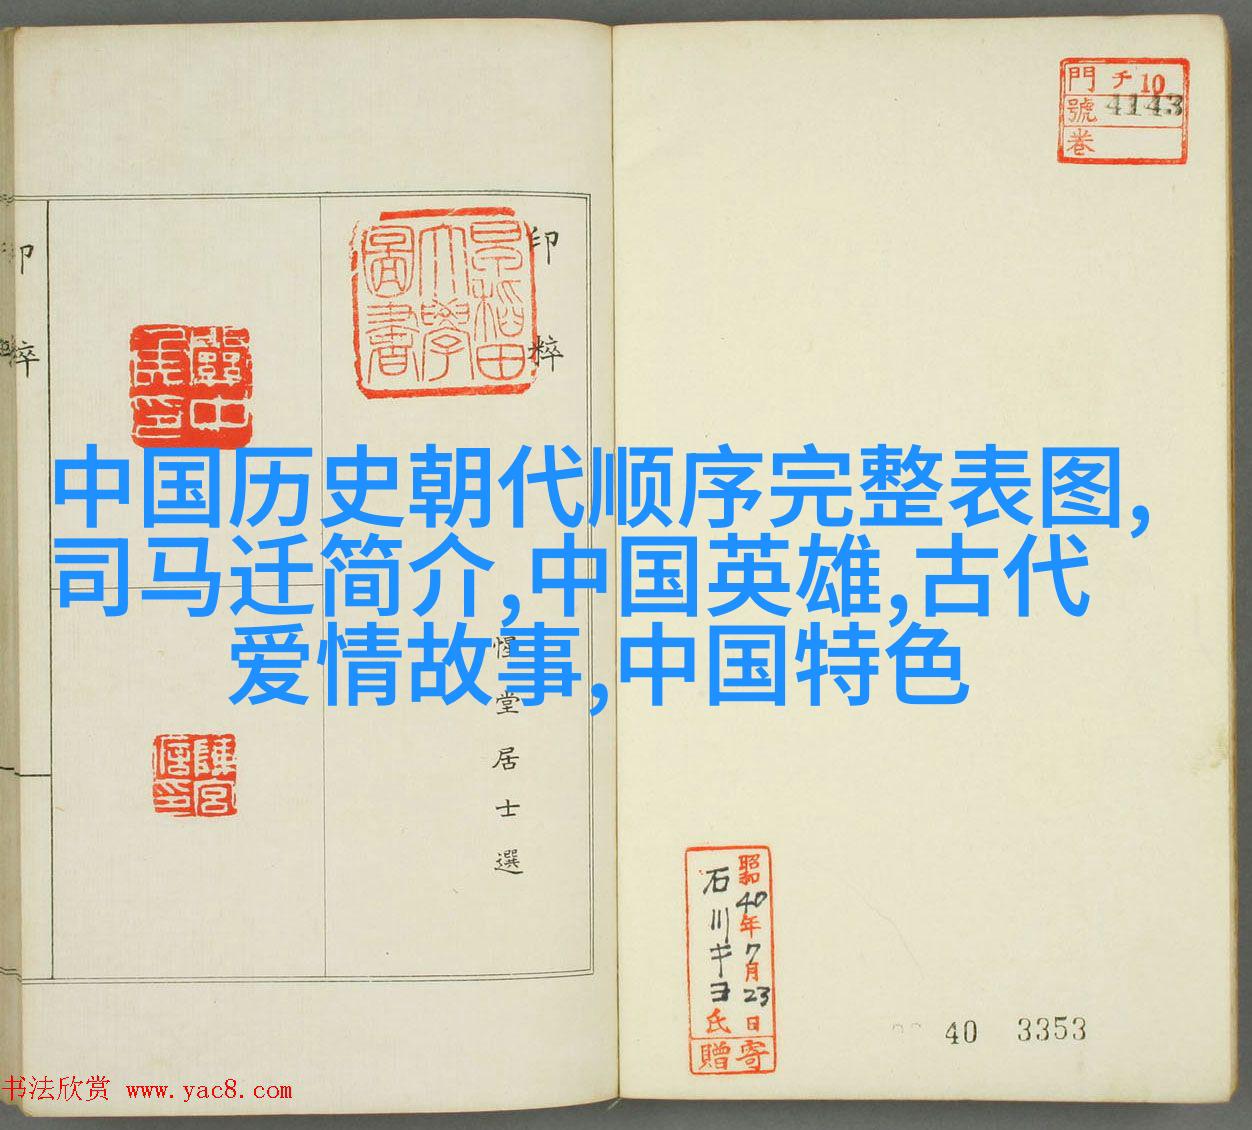 門 チ 10
號 4143
卷
印粹
早稻田
大學
圖書
印粹
中国历史朝代顺序完整表图,
司马迁简介,中国英雄,古代
爱情故事,中国特色
惺堂居士選
陳宮
信印
昭和40年7月23日寄
石川キヨ氏贈
40 3353
书法欣赏 www.yac8.com